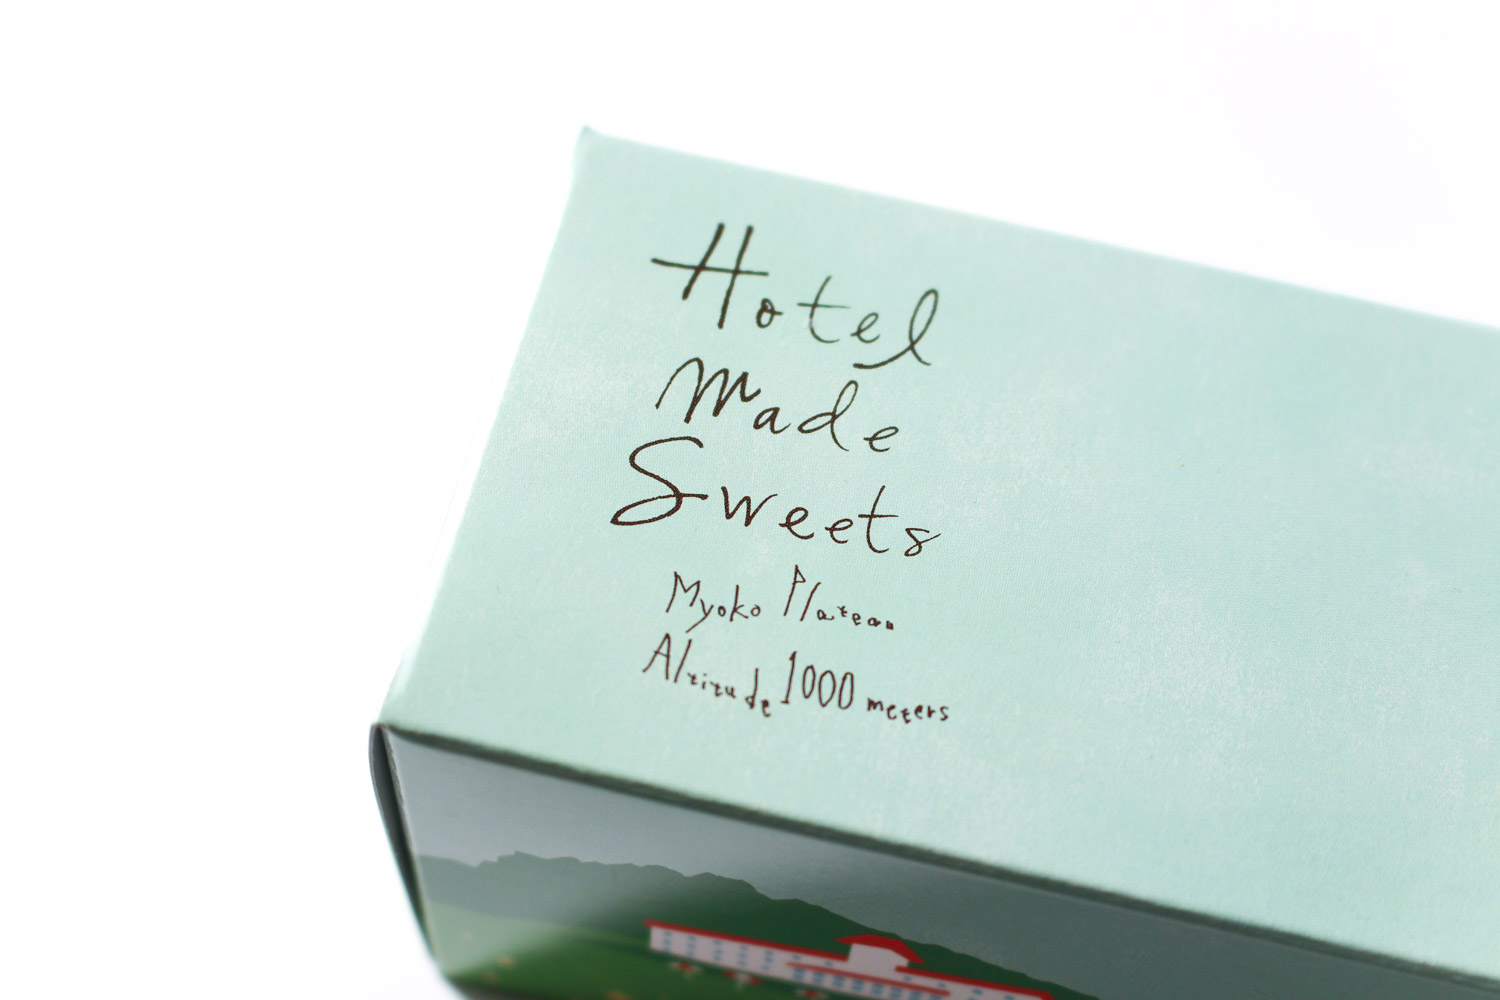 Hotel
Made
Sweets
Myoko Plateau
Altitude 1000 meters